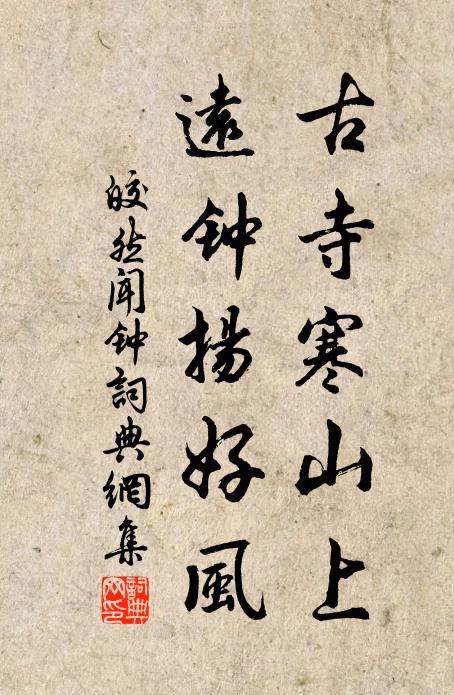 古寺寒山上
遠钟揚好風
皎然闻钟詞典網集
詞典网印